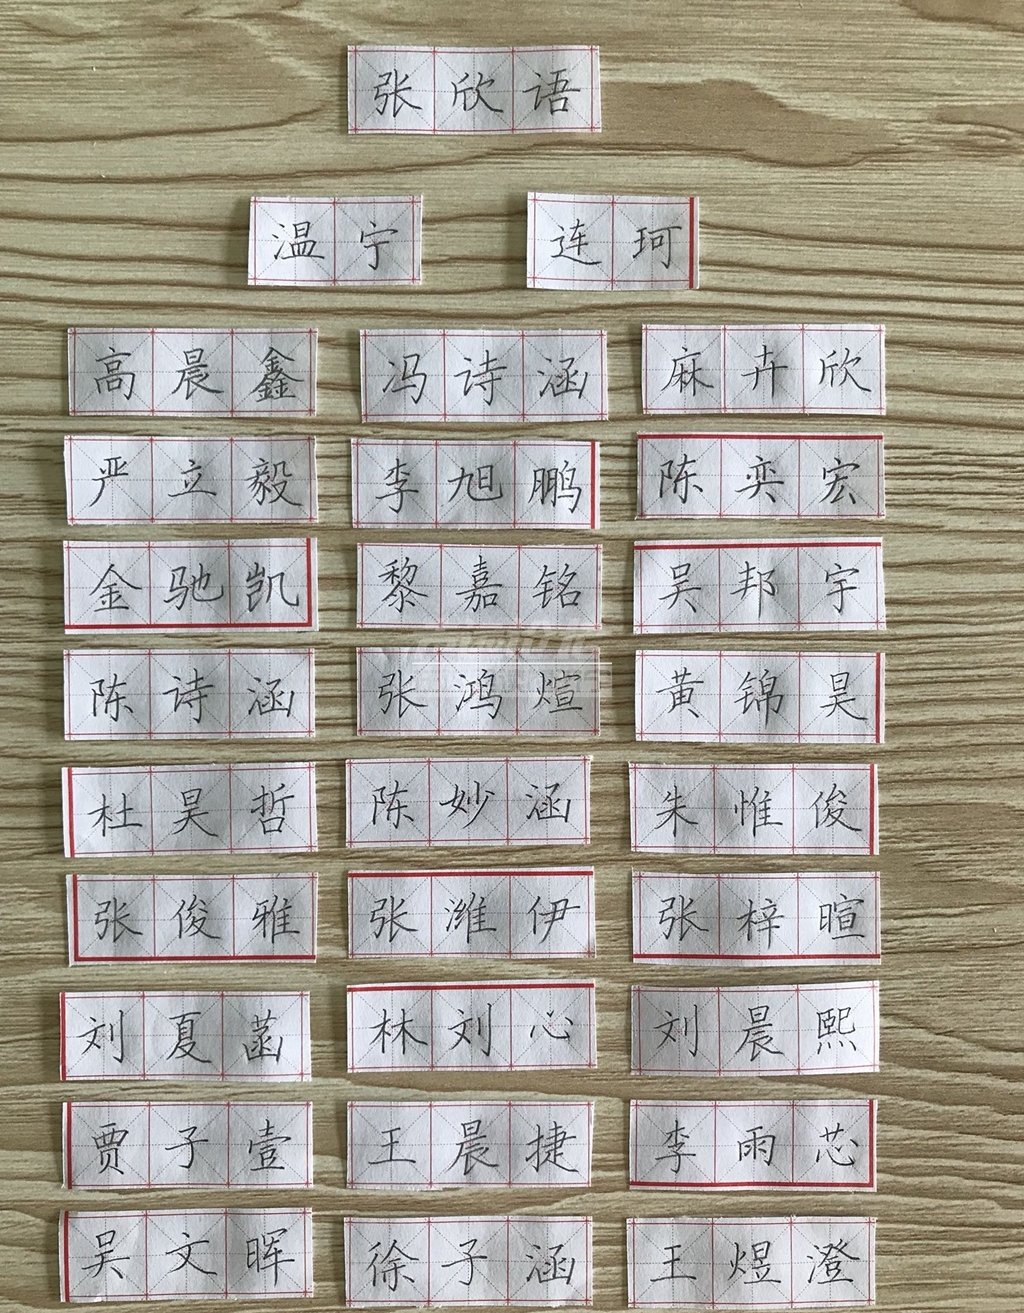 张欣语
温宁 连珂
高晨鑫 冯诗涵 麻卉欣
严立毅 李旭鹏 陈奕宏
金驰凯 黎嘉铭 吴邦宇
陈诗涵 张鸿煊 黄锦昊
杜昊哲 陈妙涵 朱惟俊
张俊雅 张潍伊 张梓暄
刘夏菡 林刘心 刘晨熙
贾子壹 王晨捷 李雨芯
吴文晖 徐子涵 王煜澄